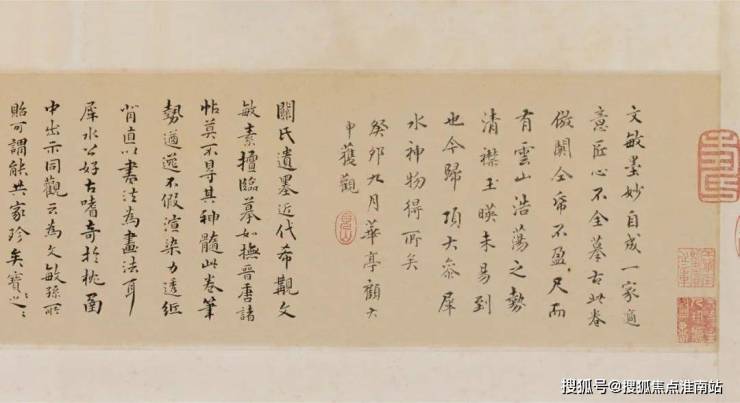 文敏墨妙自成一家適
意匠心不全摹古此卷
倣關仝帋不盈尺而
有雲山浩蕩之勢
清襟玉暎未易到
也今歸 項大參犀
水神物得所矣
癸卯九月華亭顧大
申獲觀
關氏遺墨近代希覯文
敏素擅臨摹如撫晉唐諸
帖莫不㝵其神髓此卷筆
勢遒逸不假渲染力透紙
背直以書法為畫法耳
犀水公好古嗜奇於桃圃
中出示同觀云為文敏孫所
貽可謂能共家珍矣寶〻之〻
搜狐号@搜狐焦点淮南站